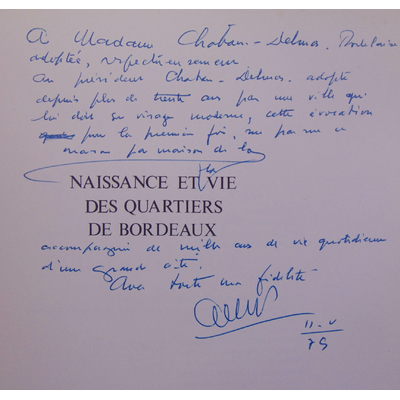 A Madame Chaban-Delmas, Bordelaise
adoptée, respectueusement
au président Chaban-Delmas, adopté
depuis plus de trente ans par une ville qui
lui doit son visage moderne, cette évocation
pour la première fois, rue par rue
maison par maison de la
NAISSANCE ET VIE
DES QUARTIERS
DE BORDEAUX
accompagnée de mille ans de vie quotidienne
d'une grande cité.
Avec toute ma fidélité
11-V
79